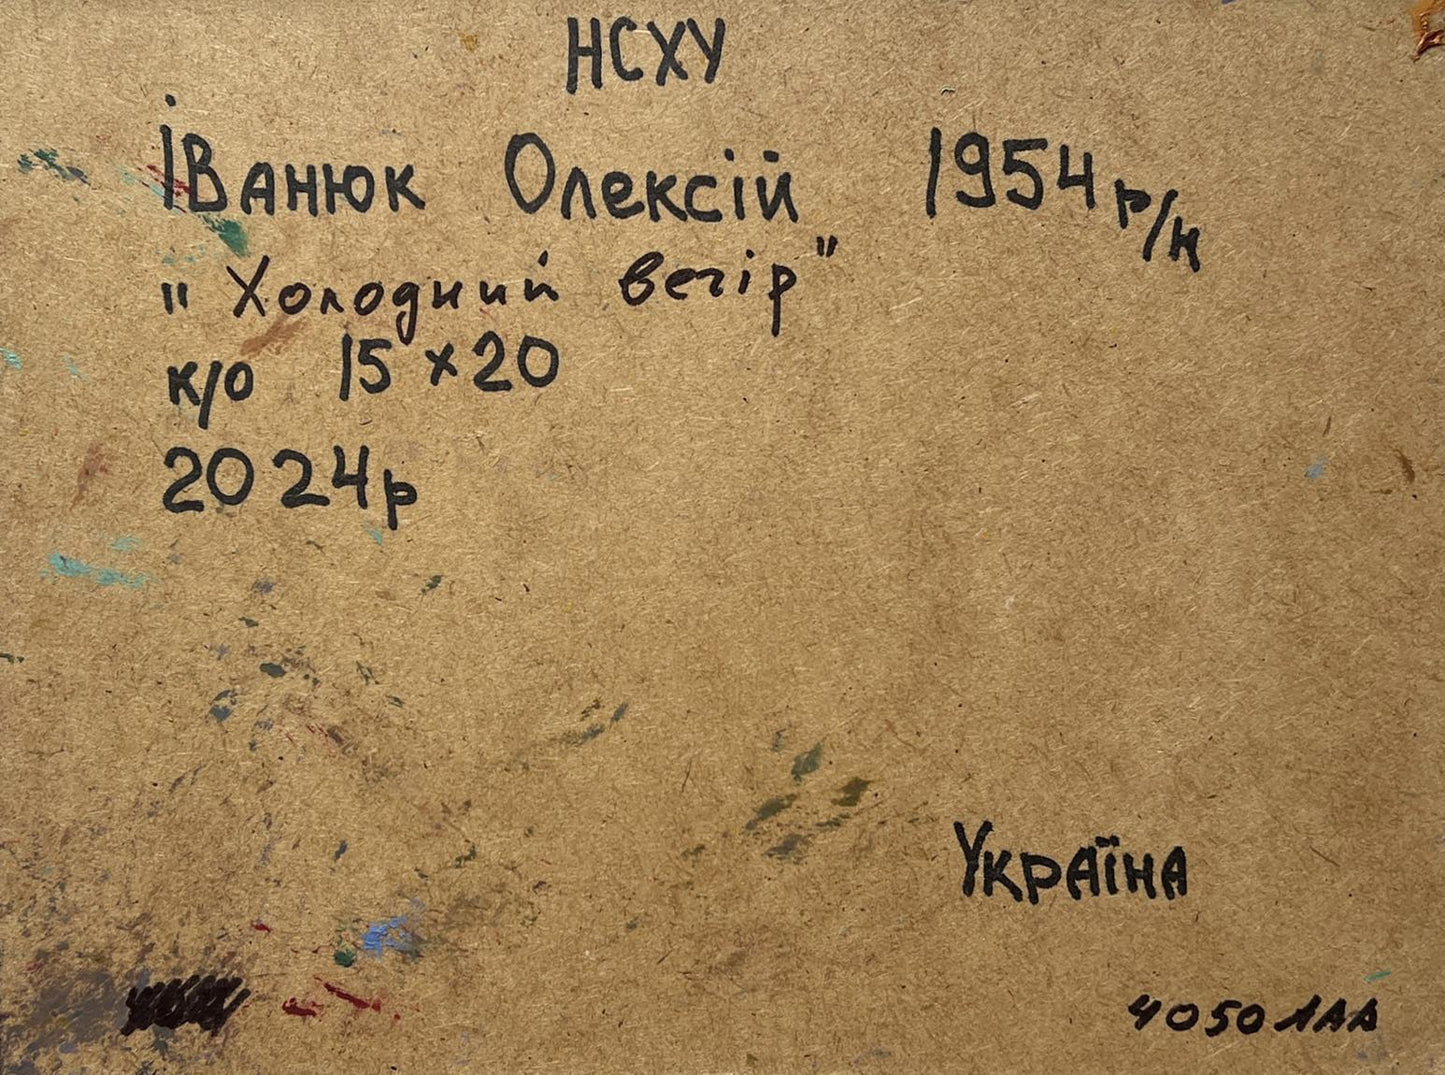 НСХУ
Іванюк Олексій 1954 р/н
"Холодний вечір"
к/о 15 x 20
2024р
Україна
4050 ЛАА